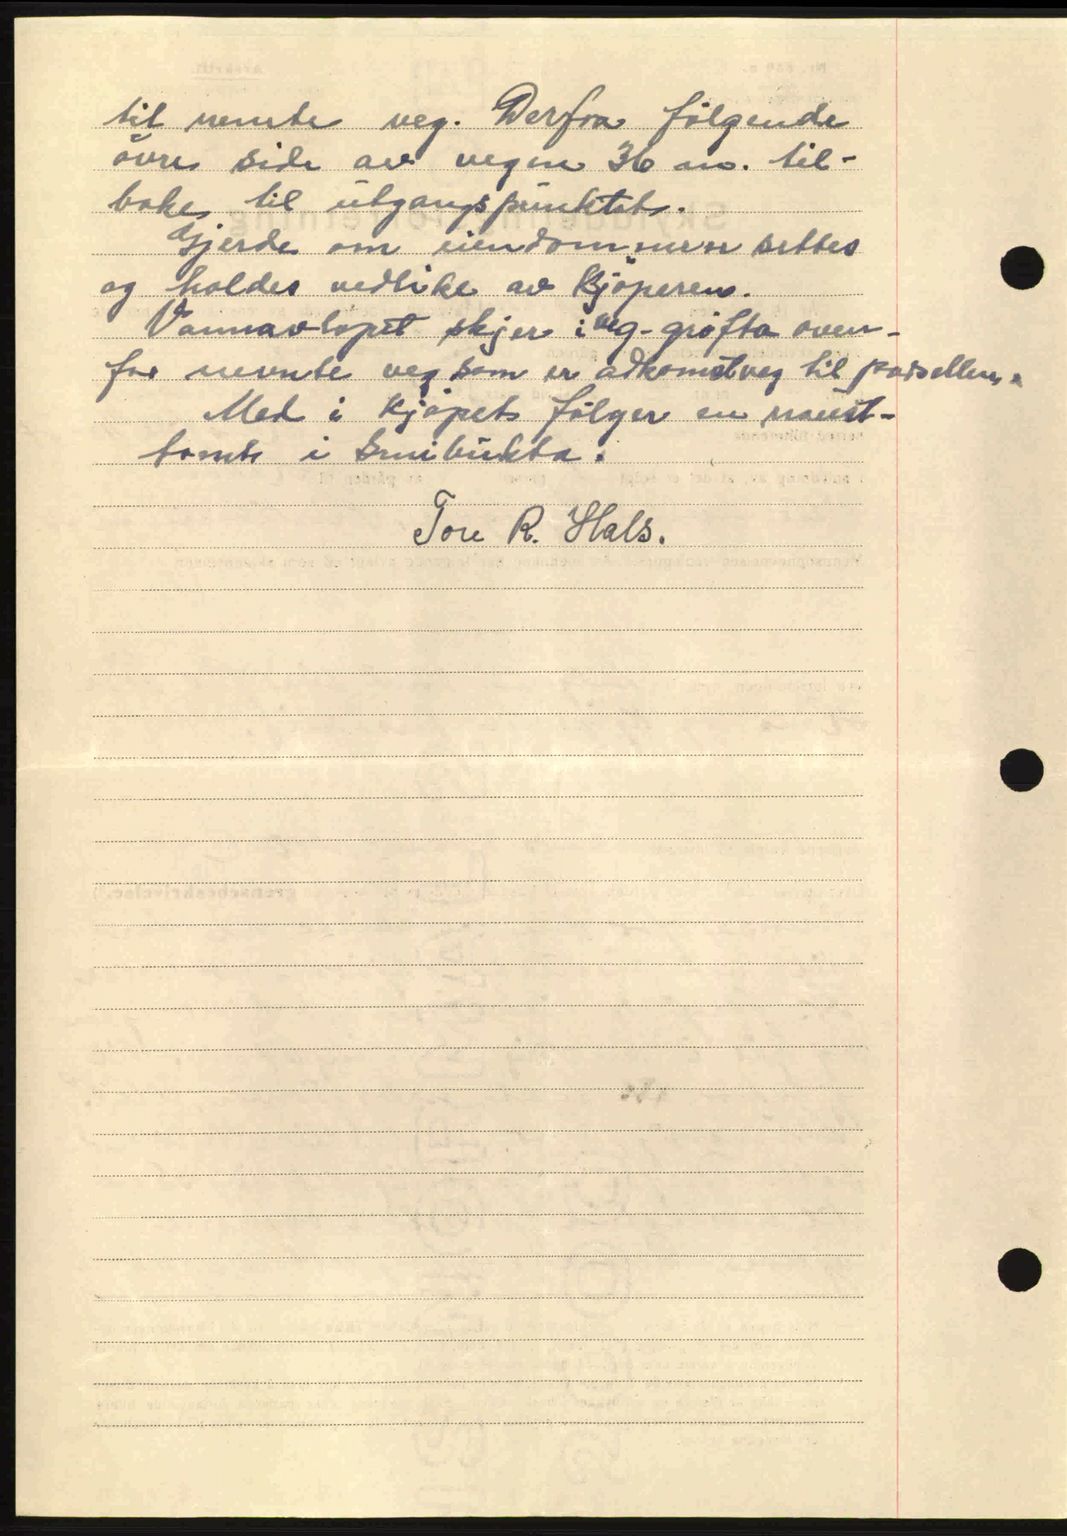 til nevnte veg. Derfra følgende
övre side av vegen 36 m. til-
bake til utgangspunktet.
Gjerde om eiendommen settes
og holdes vedlike av kjöperen.
Vannavlöpet skjer i veg-gröfta oven-
for nevnte veg som er adkomstveg til parsellen.
Med i kjöpet fölger en naust-
tomt i Smibukta.
Tore R. Hals.